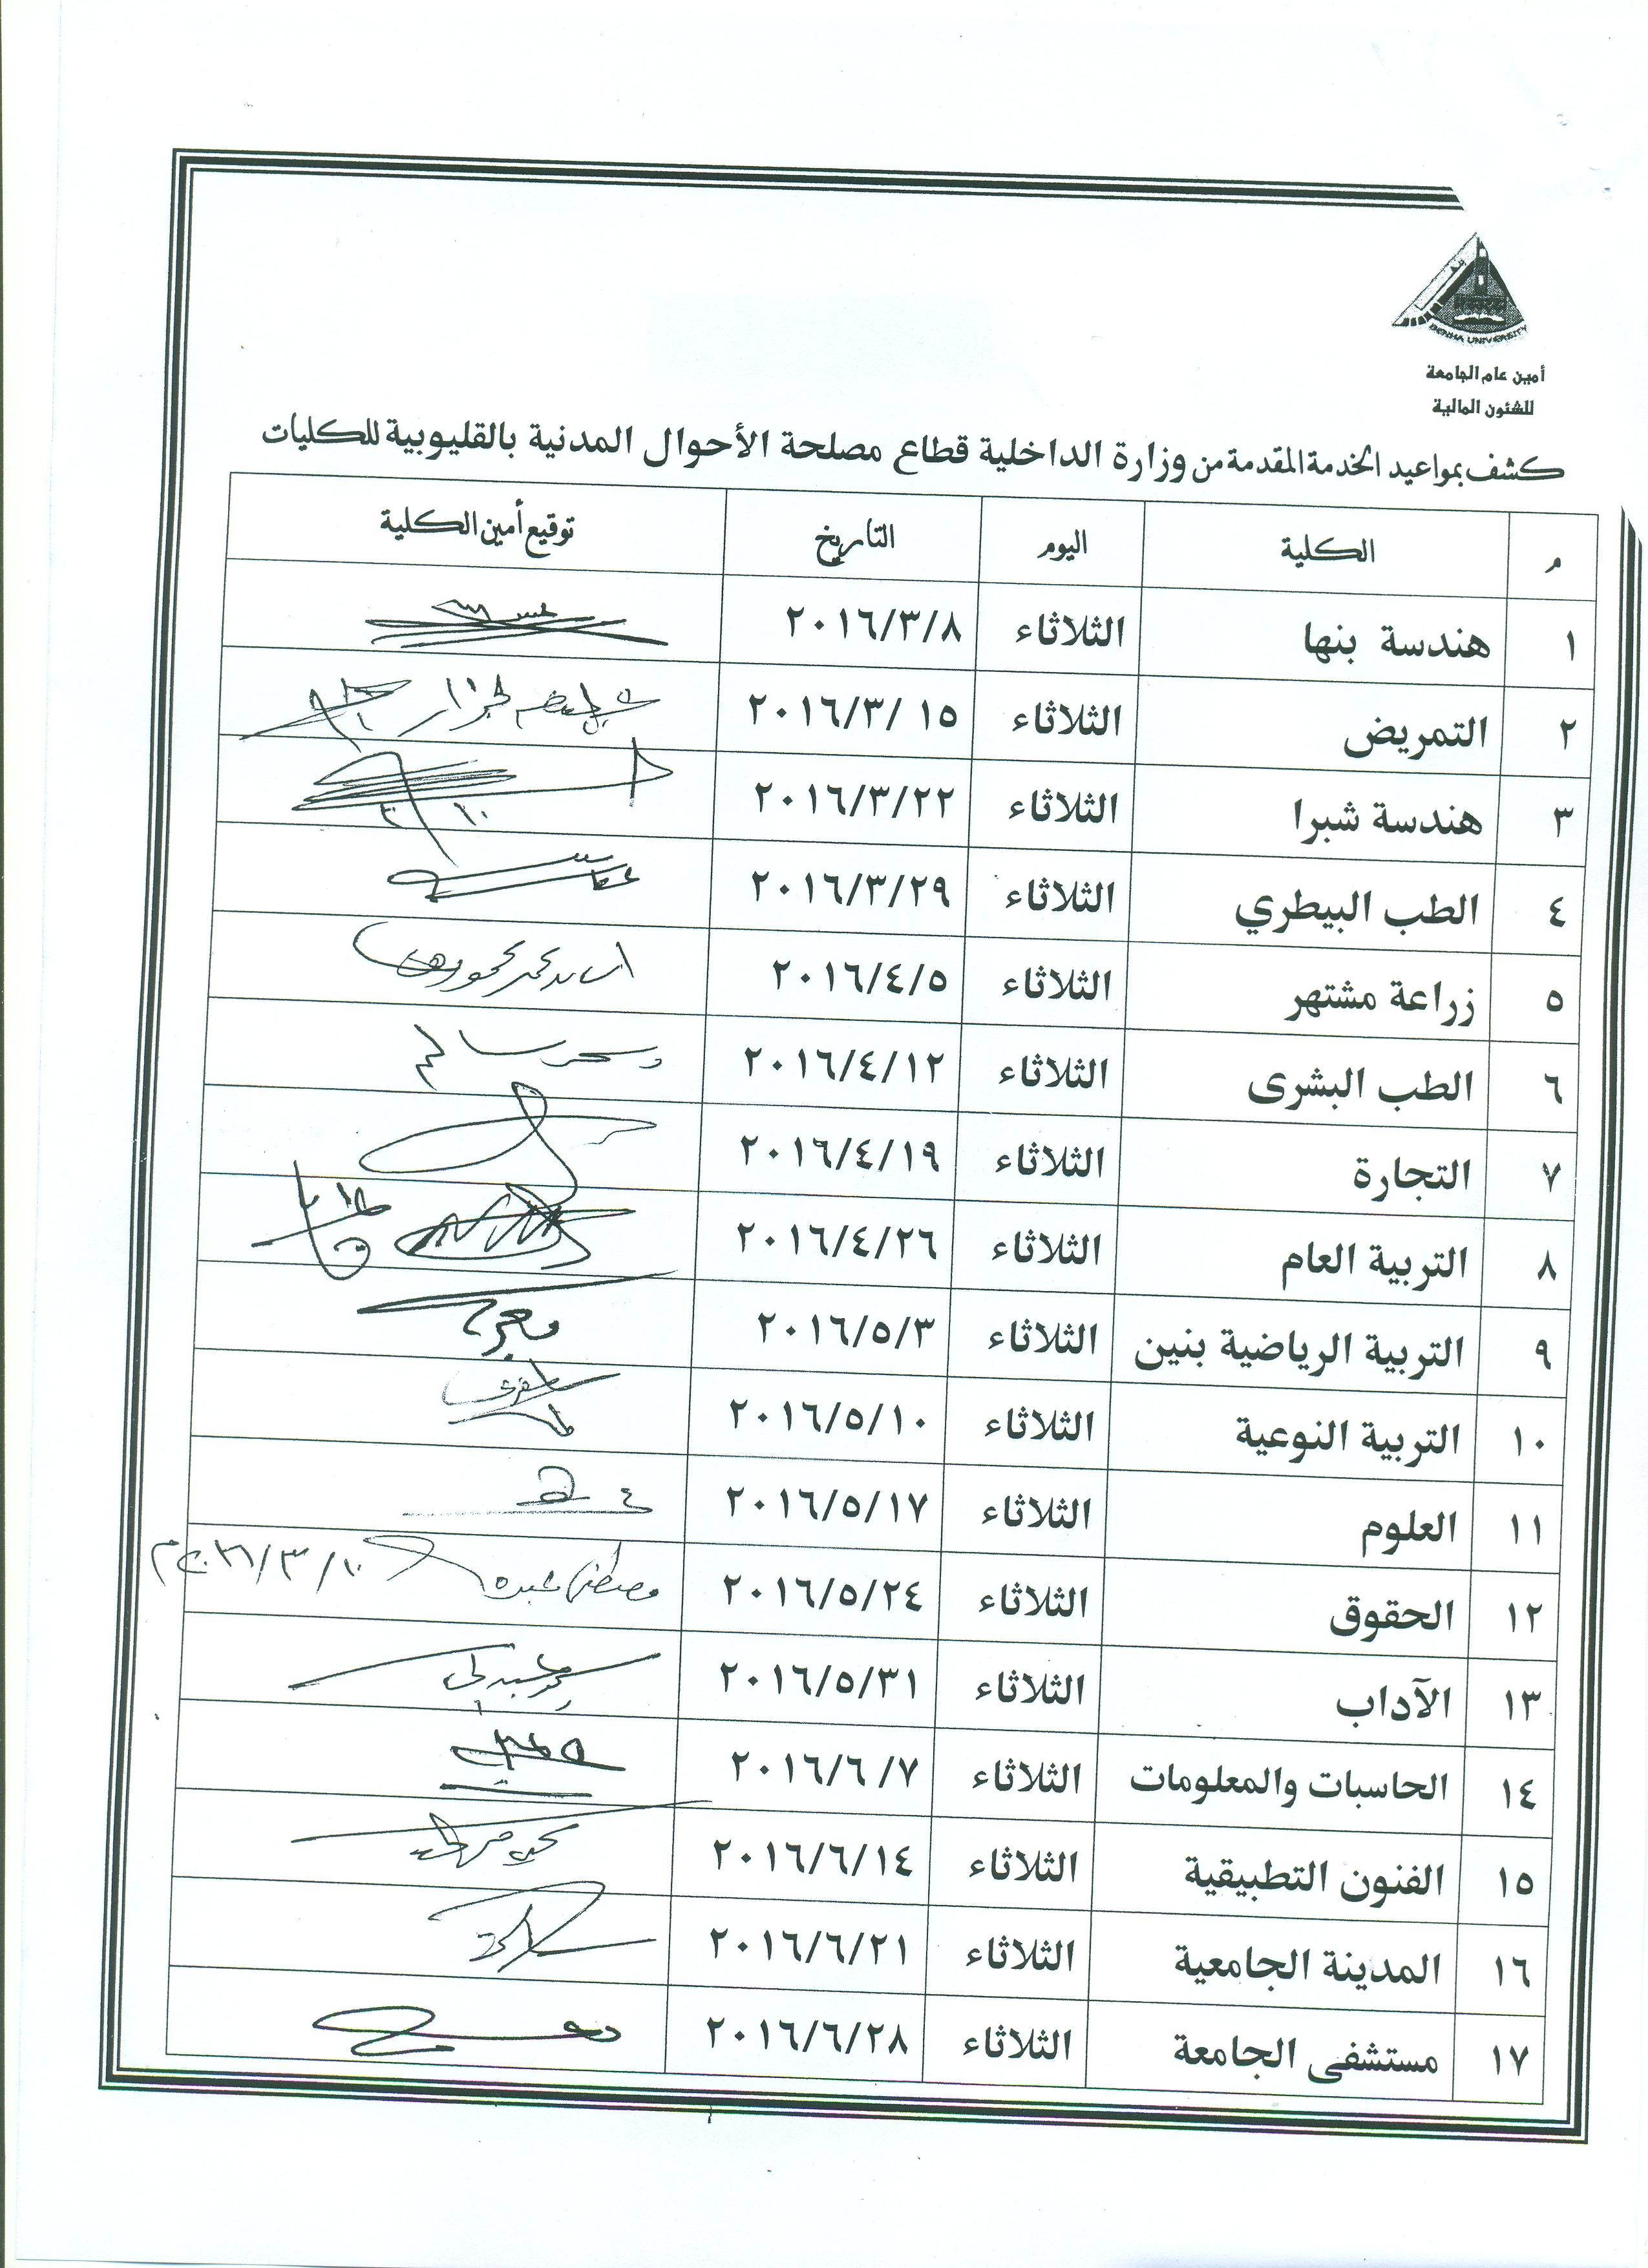 BENHA UNIVERSITY
أمين عام الجامعة
للشئون المالية
كشف بمواعيد الخدمة المقدمة من وزارة الداخلية قطاع مصلحة الأحوال المدنية بالقليوبية للكليات
م الكلية اليوم التاريخ توقيع أمين الكلية
١ هندسة بنها الثلاثاء ٢٠١٦/٣/٨
٢ التمريض الثلاثاء ٢٠١٦/٣/ ١٥
٣ هندسة شبرا الثلاثاء ٢٠١٦/٣/٢٢
٤ الطب البيطري الثلاثاء ٢٠١٦/٣/٢٩
٥ زراعة مشتهر الثلاثاء ٢٠١٦/٤/٥
٦ الطب البشرى الثلاثاء ٢٠١٦/٤/١٢
٧ التجارة الثلاثاء ٢٠١٦/٤/١٩
٨ التربية العام الثلاثاء ٢٠١٦/٤/٢٦
٩ التربية الرياضية بنين الثلاثاء ٢٠١٦/٥/٣
١٠ التربية النوعية الثلاثاء ٢٠١٦/٥/١٠
١١ العلوم الثلاثاء ٢٠١٦/٥/١٧
١٢ الحقوق الثلاثاء ٢٠١٦/٥/٢٤
١٣ الآداب الثلاثاء ٢٠١٦/٥/٣١
١٤ الحاسبات والمعلومات الثلاثاء ٢٠١٦/٦ /٧
١٥ الفنون التطبيقية الثلاثاء ٢٠١٦/٦/١٤
١٦ المدينة الجامعية الثلاثاء ٢٠١٦/٦/٢١
١٧ مستشفى الجامعة الثلاثاء ٢٠١٦/٦/٢٨